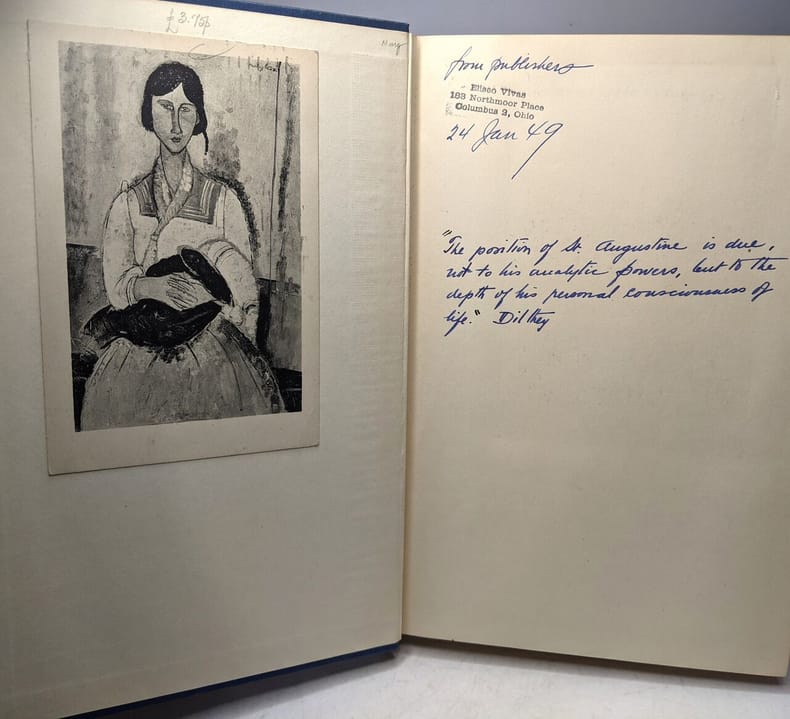 £3.75p
from publishers
Eliseo Vivas
183 Northmoor Place
Columbus 2, Ohio
24 Jan 49
"The position of St. Augustine is due,
not to his analytic powers, but to the
depth of his personal consciousness of
life." Dilthey